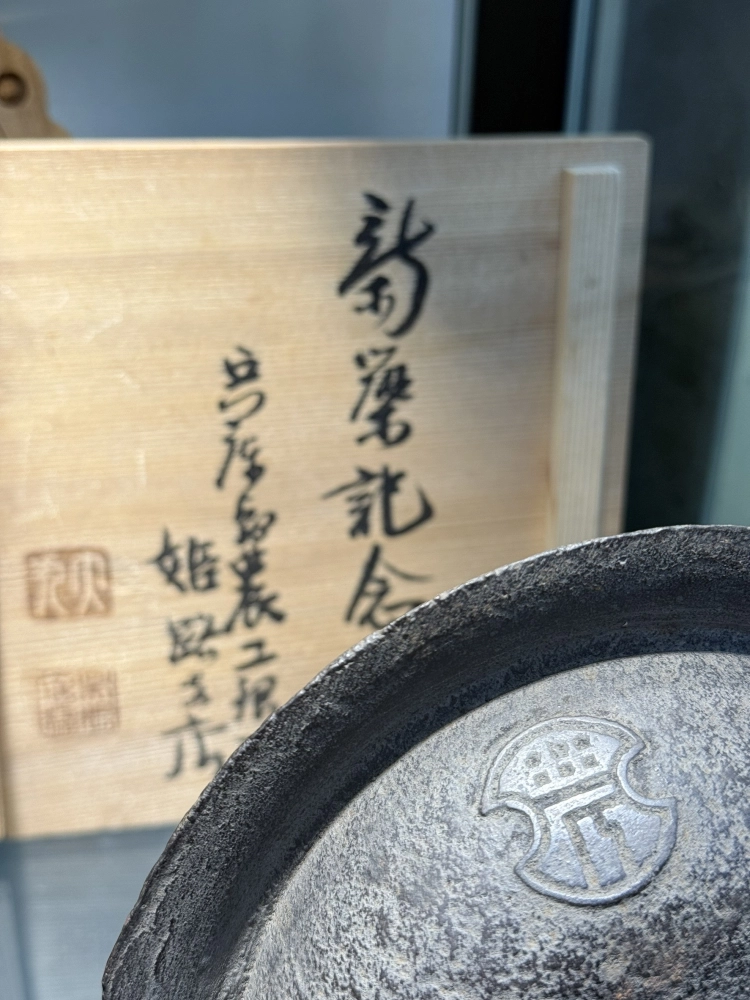 新築記念
兵庫縣農工銀
姫路支店